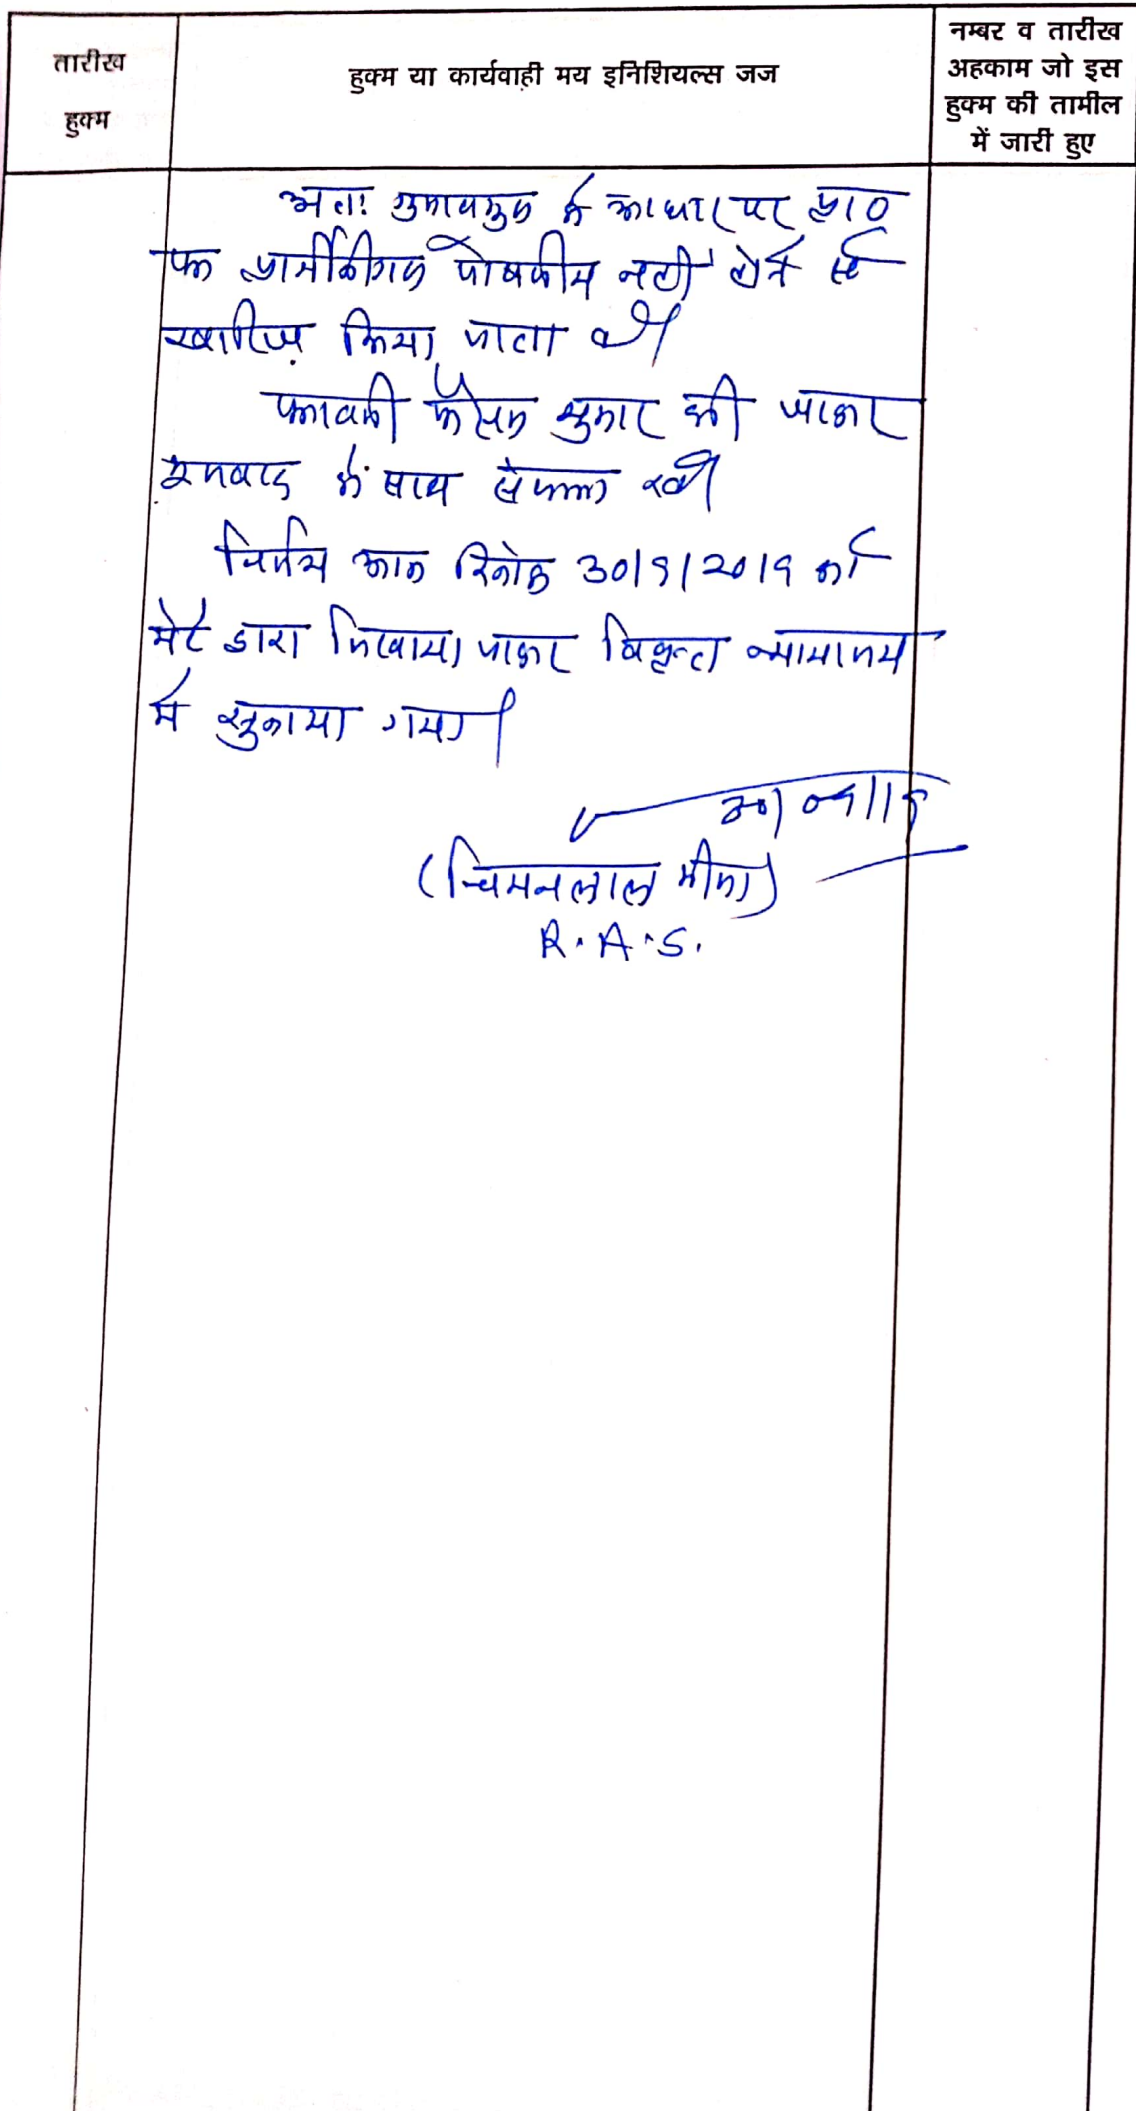 तारीख
हुक्म
हुक्म या कार्यवाही मय इनिशियल्स जज
नम्बर व तारीख
अहकाम जो इस
हुक्म की तामील
में जारी हुए
अतः गुणावगुण के आधार पर प्रा०
पत्र प्रार्थीगण पोषणीय नहीं होने से
खारिज किया जाता है।
पत्रावली फैसल शुमार की जाकर
मूलवाद के साथ संलग्न रहे।
निर्णय आज दिनांक 30/9/2019 को
मेरे द्वारा लिखाया जाकर विवृत्त न्यायालय
में सुनाया गया।
(चिमनलाल मीणा)
R.A.S.